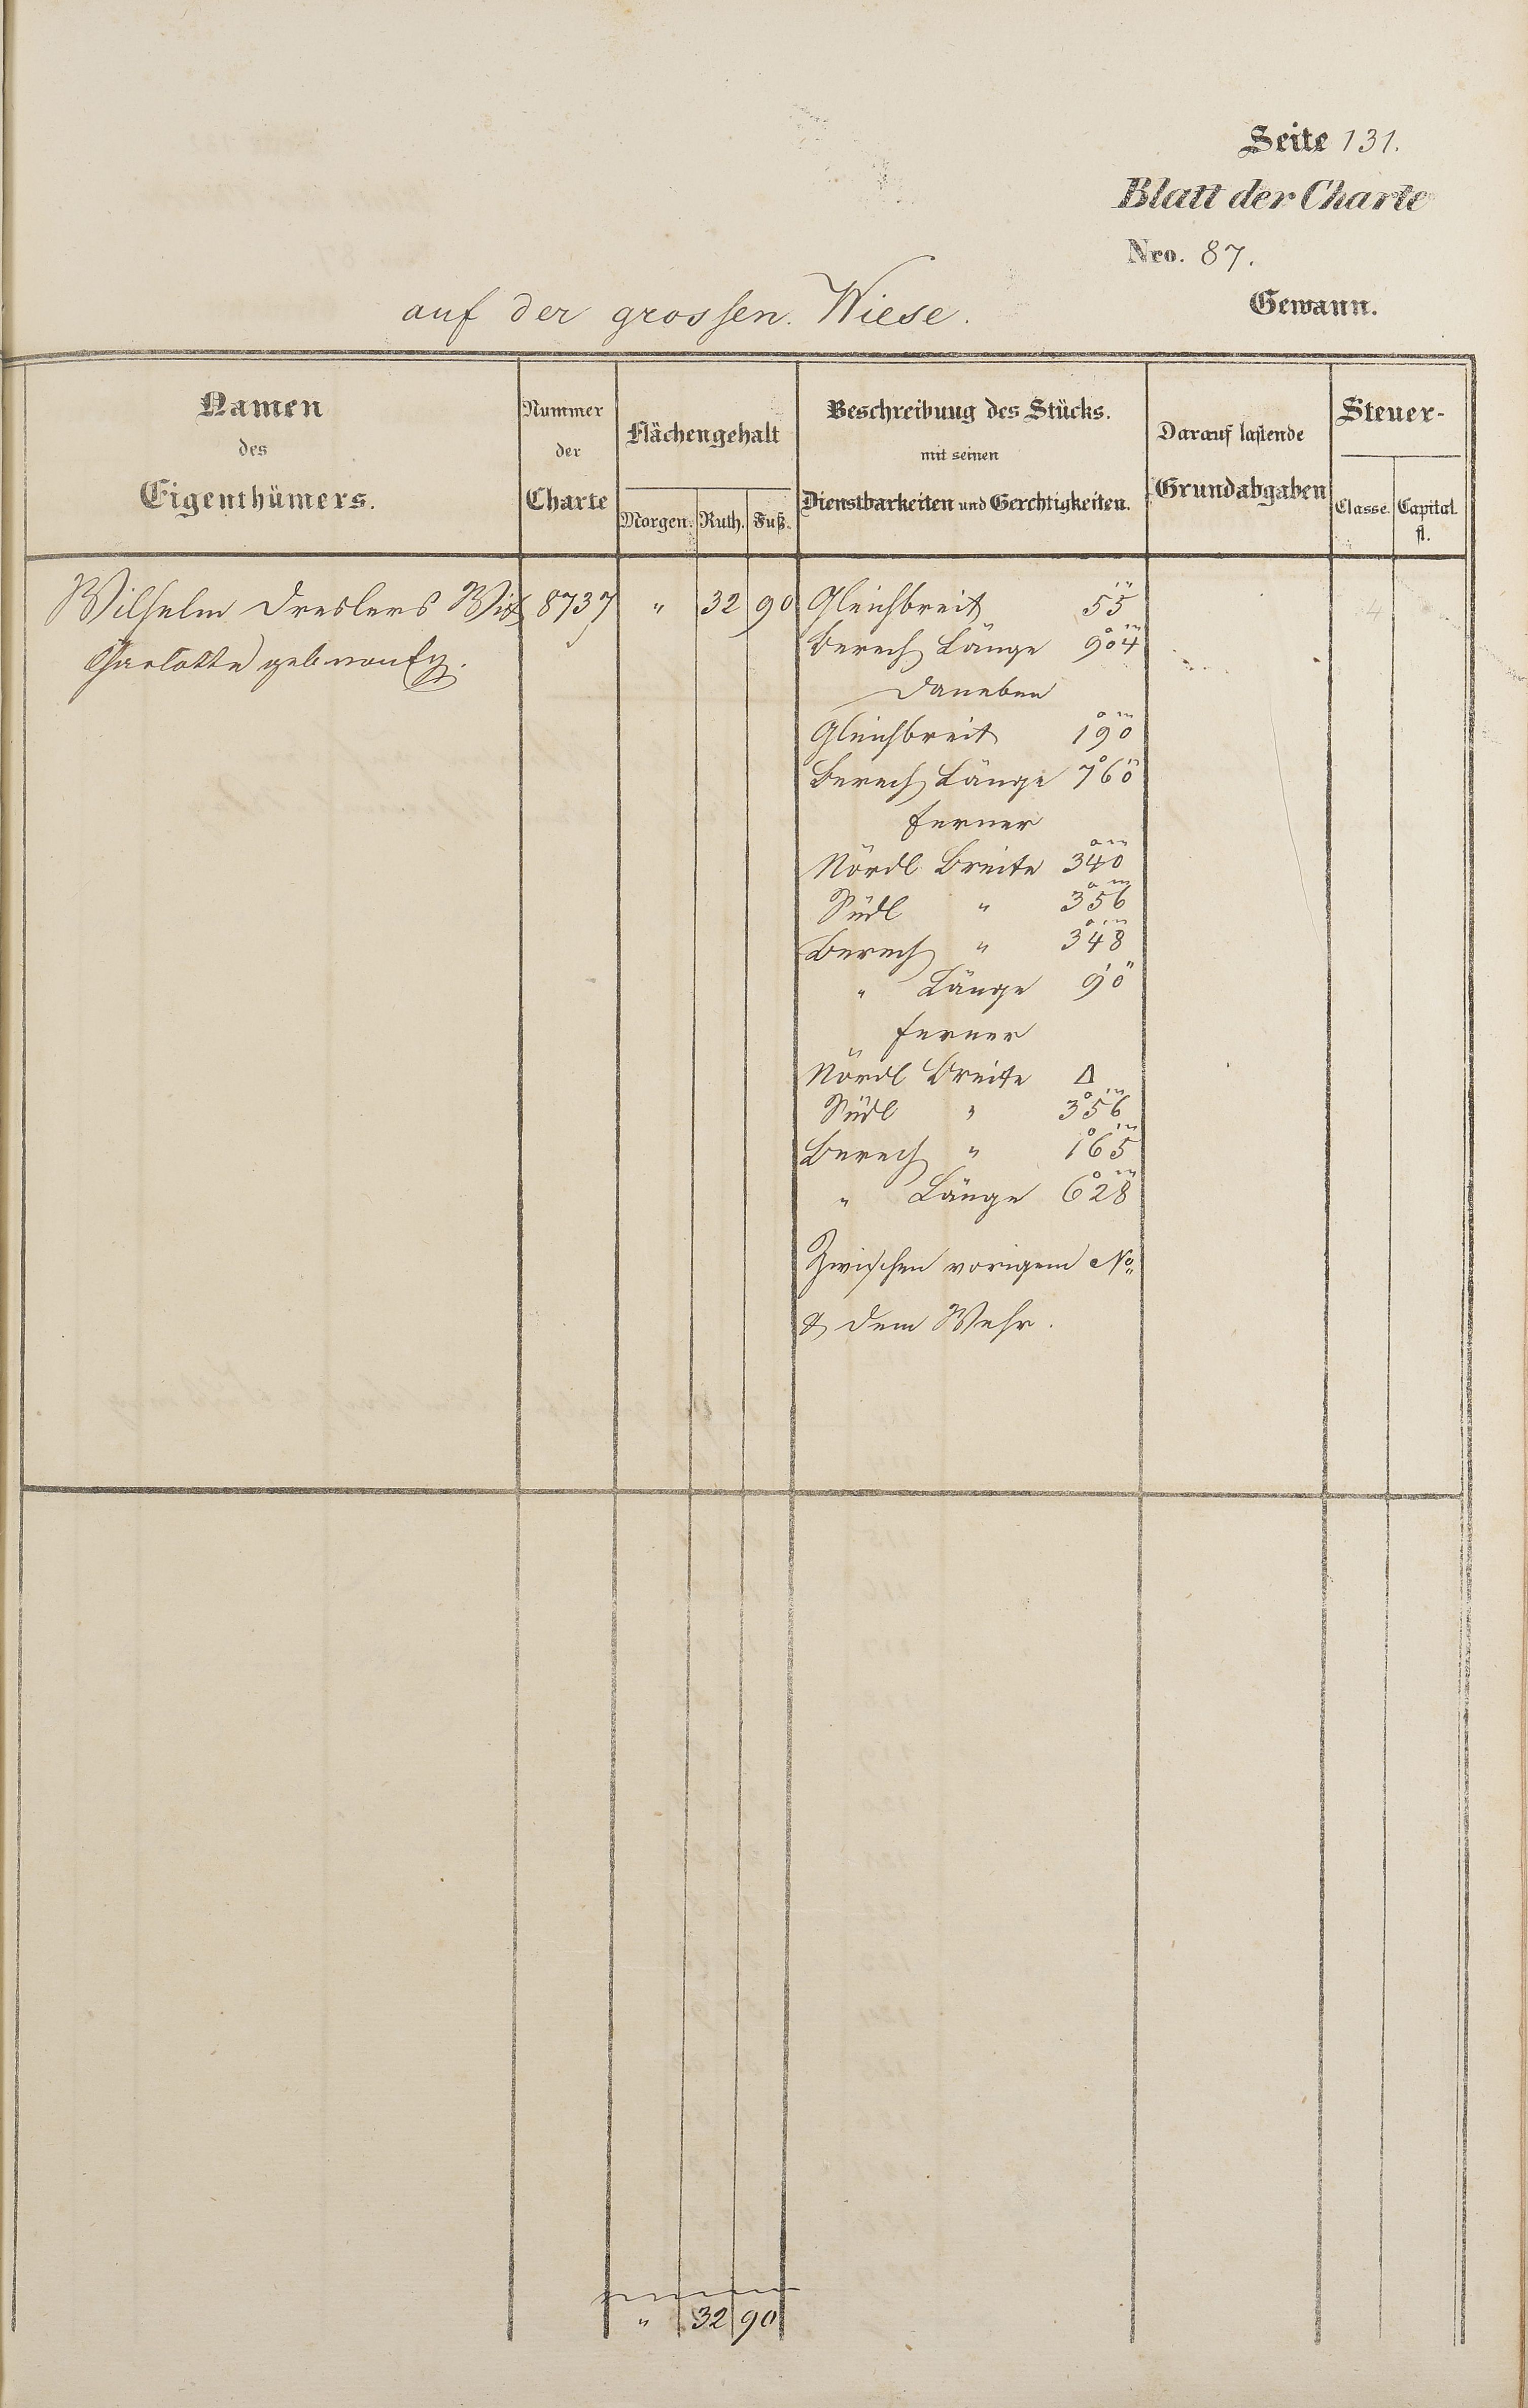 Seite 131.
Blatt der Charte
Nro. 87.
auf der grossen Wiese. Gewann.
Namen des Eigenthümers.
Nummer der Charte
Flächengehalt
Morgen. Ruth. Fuß.
Beschreibung des Stücks.
mit seinen
Dienstbarkeiten und Gerchtigkeiten.
Darauf lastende
Grundabgaben
Steuer-
Classe. Capital fl.
Wilhelm Dreslers Wit 8737 " 32 90 Gleichbreit 55
Charlotte geb
Berech Länge 904
Daneben
Gleichbreit 190
Berech Länge 760
ferner
Nördl Breite 340
Südl " 356
Berech " 348
" Länge 90
ferner
Nördl Breite Δ
Südl " 356
Berech " 165
" Länge 628
Zwischen vorigem No
& dem Wehr.
" 32 90